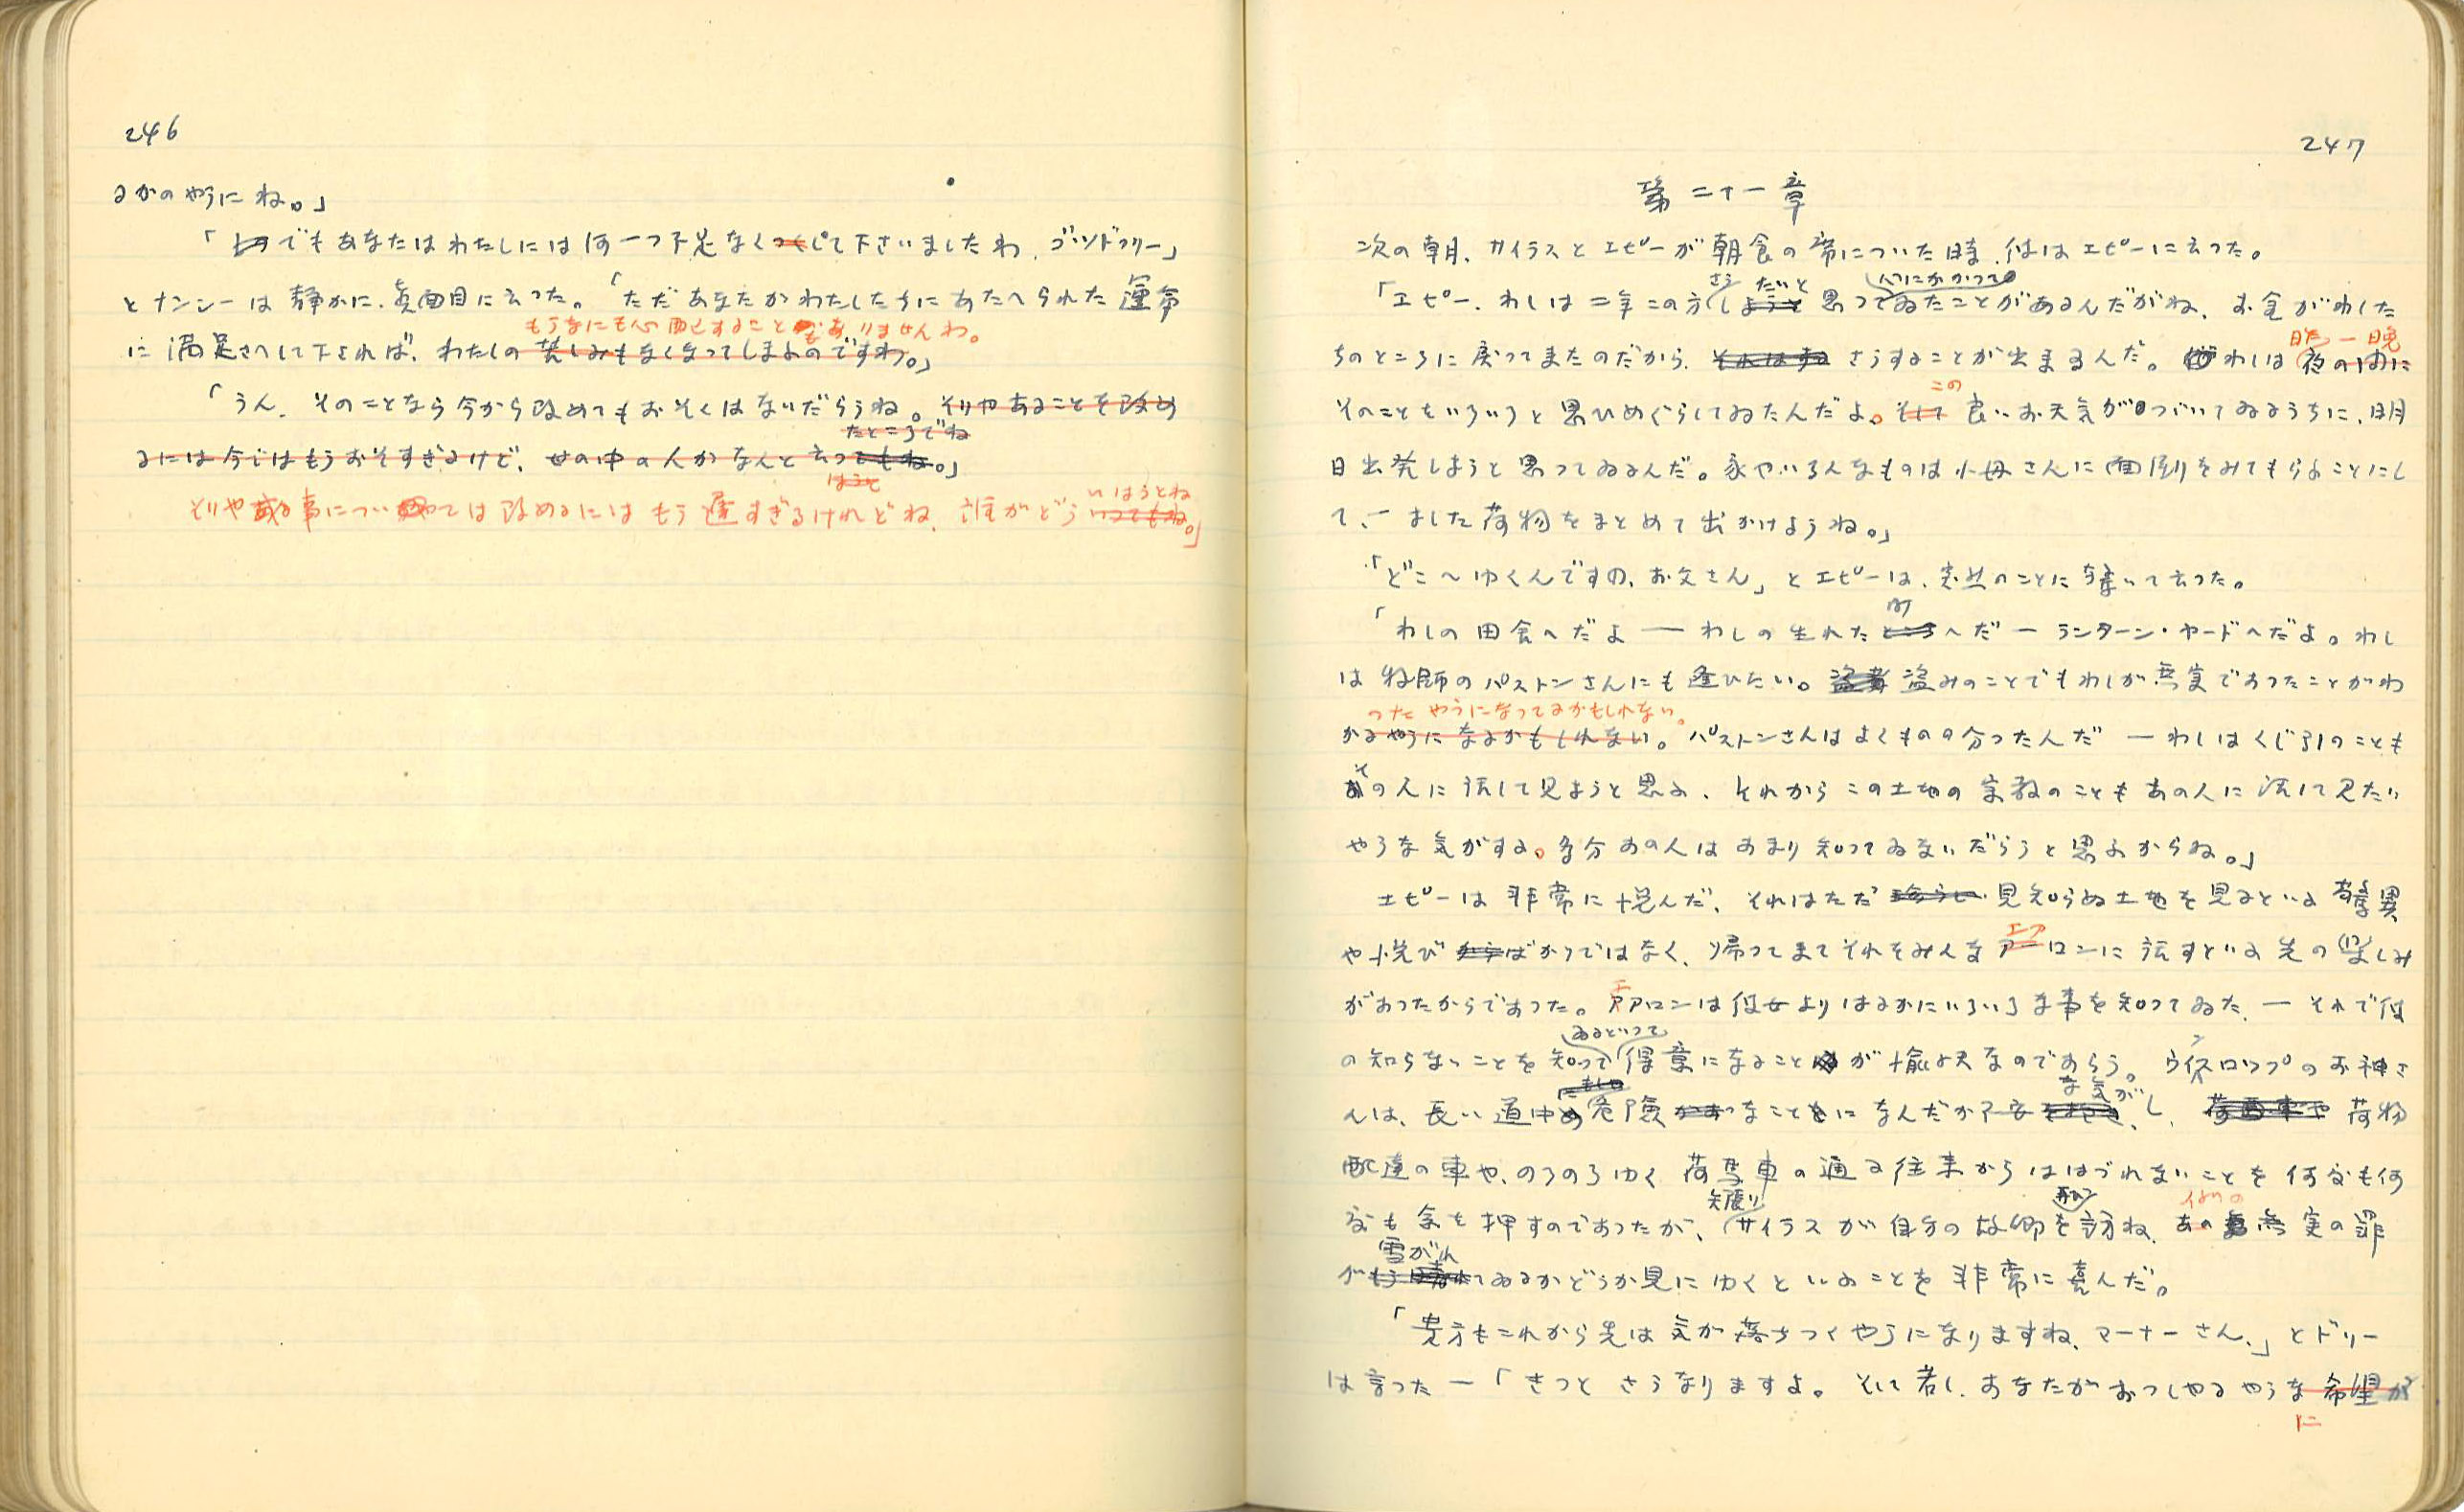 246
るかのやうにね。」
「でもあなたはわたしには何一つ不足なくして下さいましたわ、ゴッドフリー」
とナンシーは静かに、真面目に云つた。「ただあなたがわたしたちにあたへられた運命
もうなにも心配することもありませんわ。
に満足さへして下されば、わたしの苦しみもなくなってしまふのですわ。」
「うん、そのことなら今から改めてもおそくはないだらうね。そりやあることを改め
たところでね
るには今ではもうおそすぎるけど、世の中の人がなんと云つてもね。」
はうと
そりや或る事については改めるにはもう遅すぎるけれどね、誰がどういつてもね。」
いはうとね
247
第二十一章
次の朝、サイラスとエピーが朝食の席についた時、彼はエピーに云つた。
さう だいと 心にかかつて
「エピー、わしは二年この方しようと思つてゐたことがあるんだがね、お金がわした
昨一晩
ちのところに戻つてきたのだから、それはすね さうすることが出来るんだ。わしは夜の間に
この
そのことをいろいろと思ひめぐらしてゐたんだよ。そして良いお天気がつづいてゐるうちに、明
日出発しようと思つてゐるんだ。家やいろんなものは小母さんに面倒をみてもらふことにし
て、ー ました荷物をまとめて出かけようね。」
「どこへゆくんですの、お父さん」とエピーは、突然のことに驚いて云つた。
町
「わしの田舎へだよ ― わしの生れたところへだ ― ランターン・ヤードへだよ。わし
は牧師のパストンさんにも逢ひたい。盗みのことでもわしが無実であつたことがわ
つた やうになつてるかもしれない。
かるやうになるかもしれない。パストンさんはよくものの分つたんだ ― わしはくじ引のことも
そ
あの人に話して見ようと思ふ、それからこの土地の宗教のこともあの人に話して見たい
やうな気がする。多分あの人はあまり知つてゐないだらうと思ふからね。」
エピーは非常に悦んだ、それはただ 見知らぬ土地を見るといふ驚異
エア
や悦びばかりではなく、帰つてきてそれをみんなアーロンに話すといふ先の楽しみ
エ
があつたからであつた。アアロンは彼女よりはるかにいろいろな事を知つてゐた、― それで彼
ゐるといつて
の知らないことを知つて得意になることが愉快なのであらう。ウイスロップのお神さ
ン
な気が
んは、長い道中の危険なことになんだか不安 し、荷物
配達の車や、のろのろゆく荷馬車の通る往来からははづれないことを何度も何
矢張り 再び 彼の
度も念を押すのであつたが、サイラスが自分の故郷を訪ね、あの無実の罪
雪がれ
がもう晴れてゐるかどうか見にゆくといふことを非常に喜んだ。
「貴方もこれから先は気が落ちつくやうになりますね、マーナーさん、」とドリー
は言つた ―「きつとさうなりますよ。そして若し、あなたがおつしやるやうな希望が
に